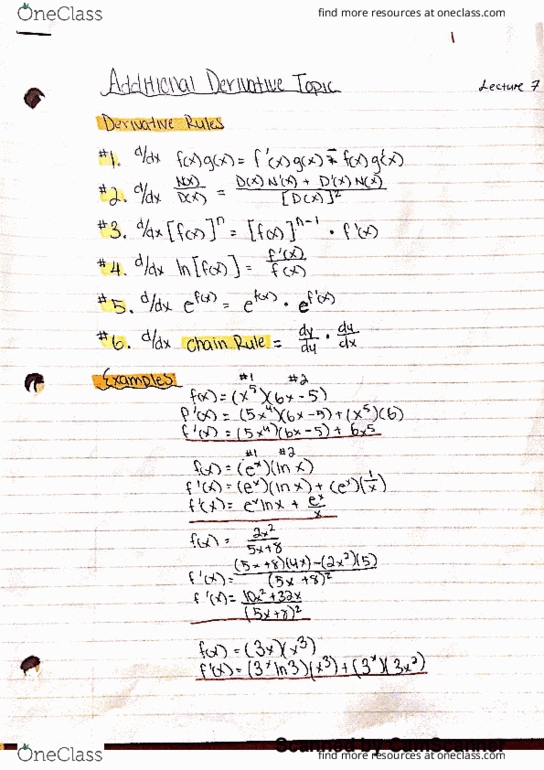 OneClass
find more resources at oneclass.com
1
Additional Derivative Topic
Lecture 7
Derivative Rules
#1. d/dx f(x)g(x) = f'(x)g(x) + f(x)g'(x)
#2. d/dx N(x)/D(x) = D(x)N'(x) + D'(x)N(x) / [D(x)]²
#3. d/dx [f(x)]ⁿ = [f(x)]ⁿ⁻¹ · f'(x)
#4. d/dx ln[f(x)] = f'(x)/f(x)
#5. d/dx e^f(x) = e^f(x) · e^f'(x)
#6. d/dx Chain Rule = dy/du · du/dx
Examples
#1 #2
f(x) = (x⁵)(6x-5)
f'(x) = (5x⁴)(6x-5) + (x⁵)(6)
f'(x) = (5x⁴)(6x-5) + 6x⁵
#1 #2
f(x) = (eˣ)(ln x)
f'(x) = (eˣ)(ln x) + (eˣ)(1/x)
f'(x) = eˣ ln x + eˣ/x
f(x) = 2x²/5x+8
f'(x) = (5x+8)(4x)-(2x²)(5) / (5x+8)²
f'(x) = 10x²+32x / (5x+8)²
f(x) = (3x)(x³)
f'(x) = (3ˣ ln 3)(x³) + (3ˣ)(3x²)
Scanned by CamScanner
OneClass
find more resources at oneclass.com